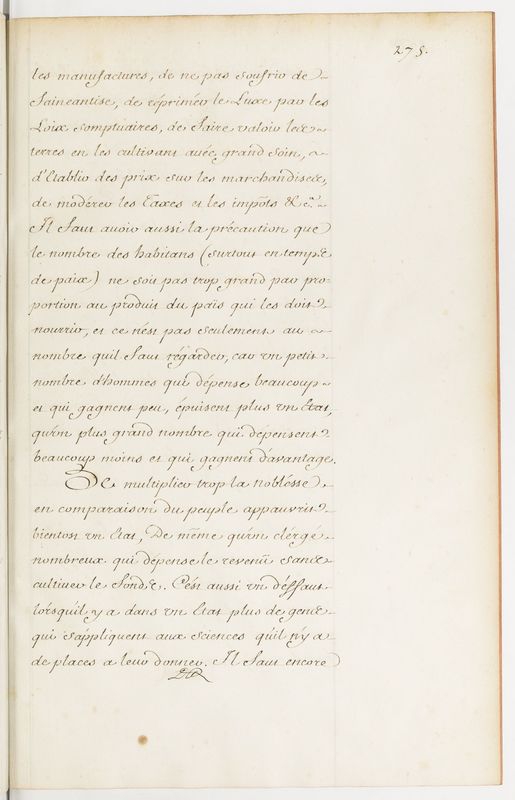 275.
les manufactures, de ne pas soufrir de
faineantise, de réprimer le Luxe par les
Loix somptuaires, de faire valoir les
terres en les cultivant avéc grand soin,
d'Etablir des prix sur les marchandises,
de modérer les Taxes et les impôts &c.ª
Il faut avoir aussi la précaution que
le nombre des habitans (surtout en temps
de paix) ne soit pas trop grand par pro=
portion au produit du païs qui les doit
nourrir, et ce nést pas seulement au
nombre quil faut régarder, car un petit
nombre d'hommes qui dépense beaucoup
et qui gagnent peu, épuisent plus un Etat,
qu'un plus grand nombre qui dépensent
beaucoup moins et qui gagnent d'avantage.
De multiplier trop la noblésse
en comparaison du peuple appauvrit
bientost un Etat, De même qu'un clérgé
nombreux qui dépense le revenü sans
cultiver le fonds. C'ést aussi un déffaut
lorsqu'il y a dans un Etat plus de gens
qui s'appliquent aux sciences quil n'y a
de places a leur donner. Il faut encore